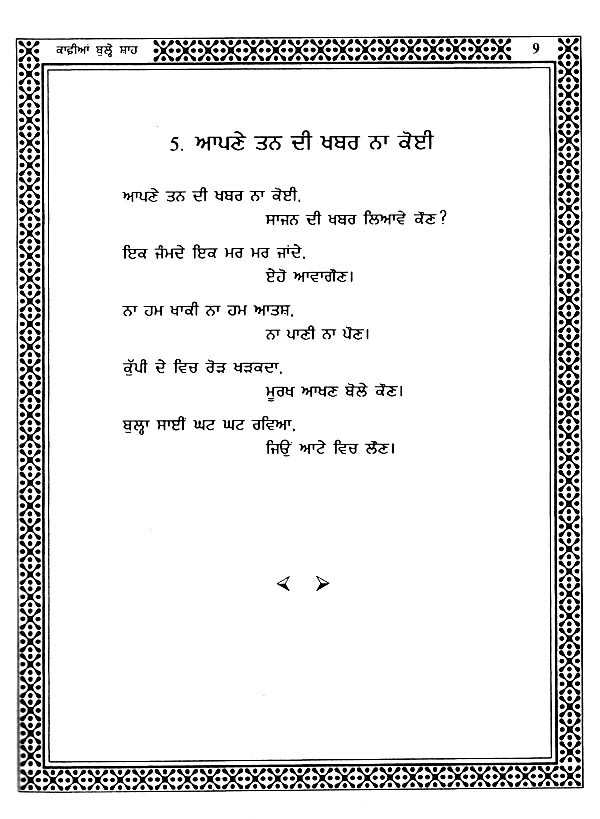 ਕਾਫ਼ੀਆਂ ਬੁਲ੍ਹੇ ਸ਼ਾਹ 9
5. ਆਪਣੇ ਤਨ ਦੀ ਖਬਰ ਨਾ ਕੋਈ
ਆਪਣੇ ਤਨ ਦੀ ਖਬਰ ਨਾ ਕੋਈ,
ਸਾਜਨ ਦੀ ਖਬਰ ਲਿਆਵੇ ਕੌਣ?
ਇਕ ਜੰਮਦੇ ਇਕ ਮਰ ਮਰ ਜਾਂਦੇ,
ਏਹੋ ਆਵਾਗੌਣ।
ਨਾ ਹਮ ਖਾਕੀ ਨਾ ਹਮ ਆਤਸ਼,
ਨਾ ਪਾਣੀ ਨਾ ਪੌਣ।
ਕੁੱਪੀ ਦੇ ਵਿਚ ਰੋੜ ਖੜਕਦਾ,
ਮੂਰਖ ਆਖਣ ਬੋਲੇ ਕੌਣ।
ਬੁਲ੍ਹਾ ਸਾਈਂ ਘਟ ਘਟ ਰਵਿਆ,
ਜਿਉਂ ਆਟੇ ਵਿਚ ਲੌਣ।